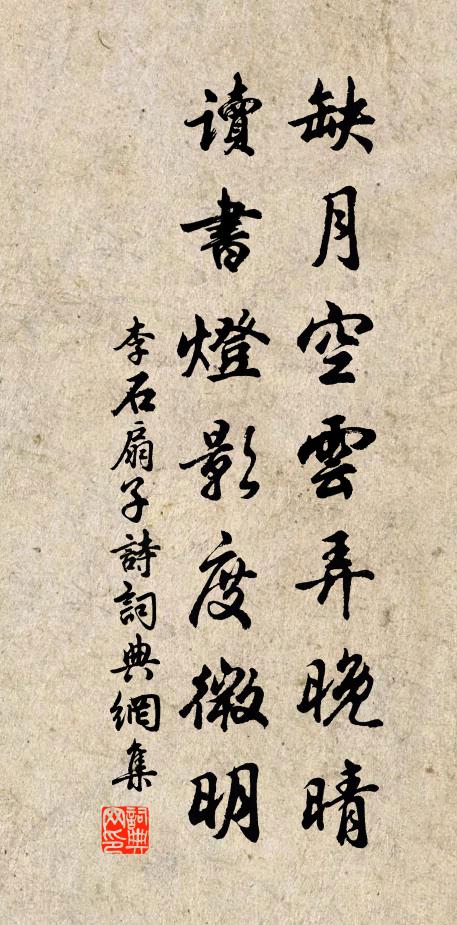 缺月空雲弄晚晴
讀書燈影度微明
李石扇子詩詞典網集
詞典網印